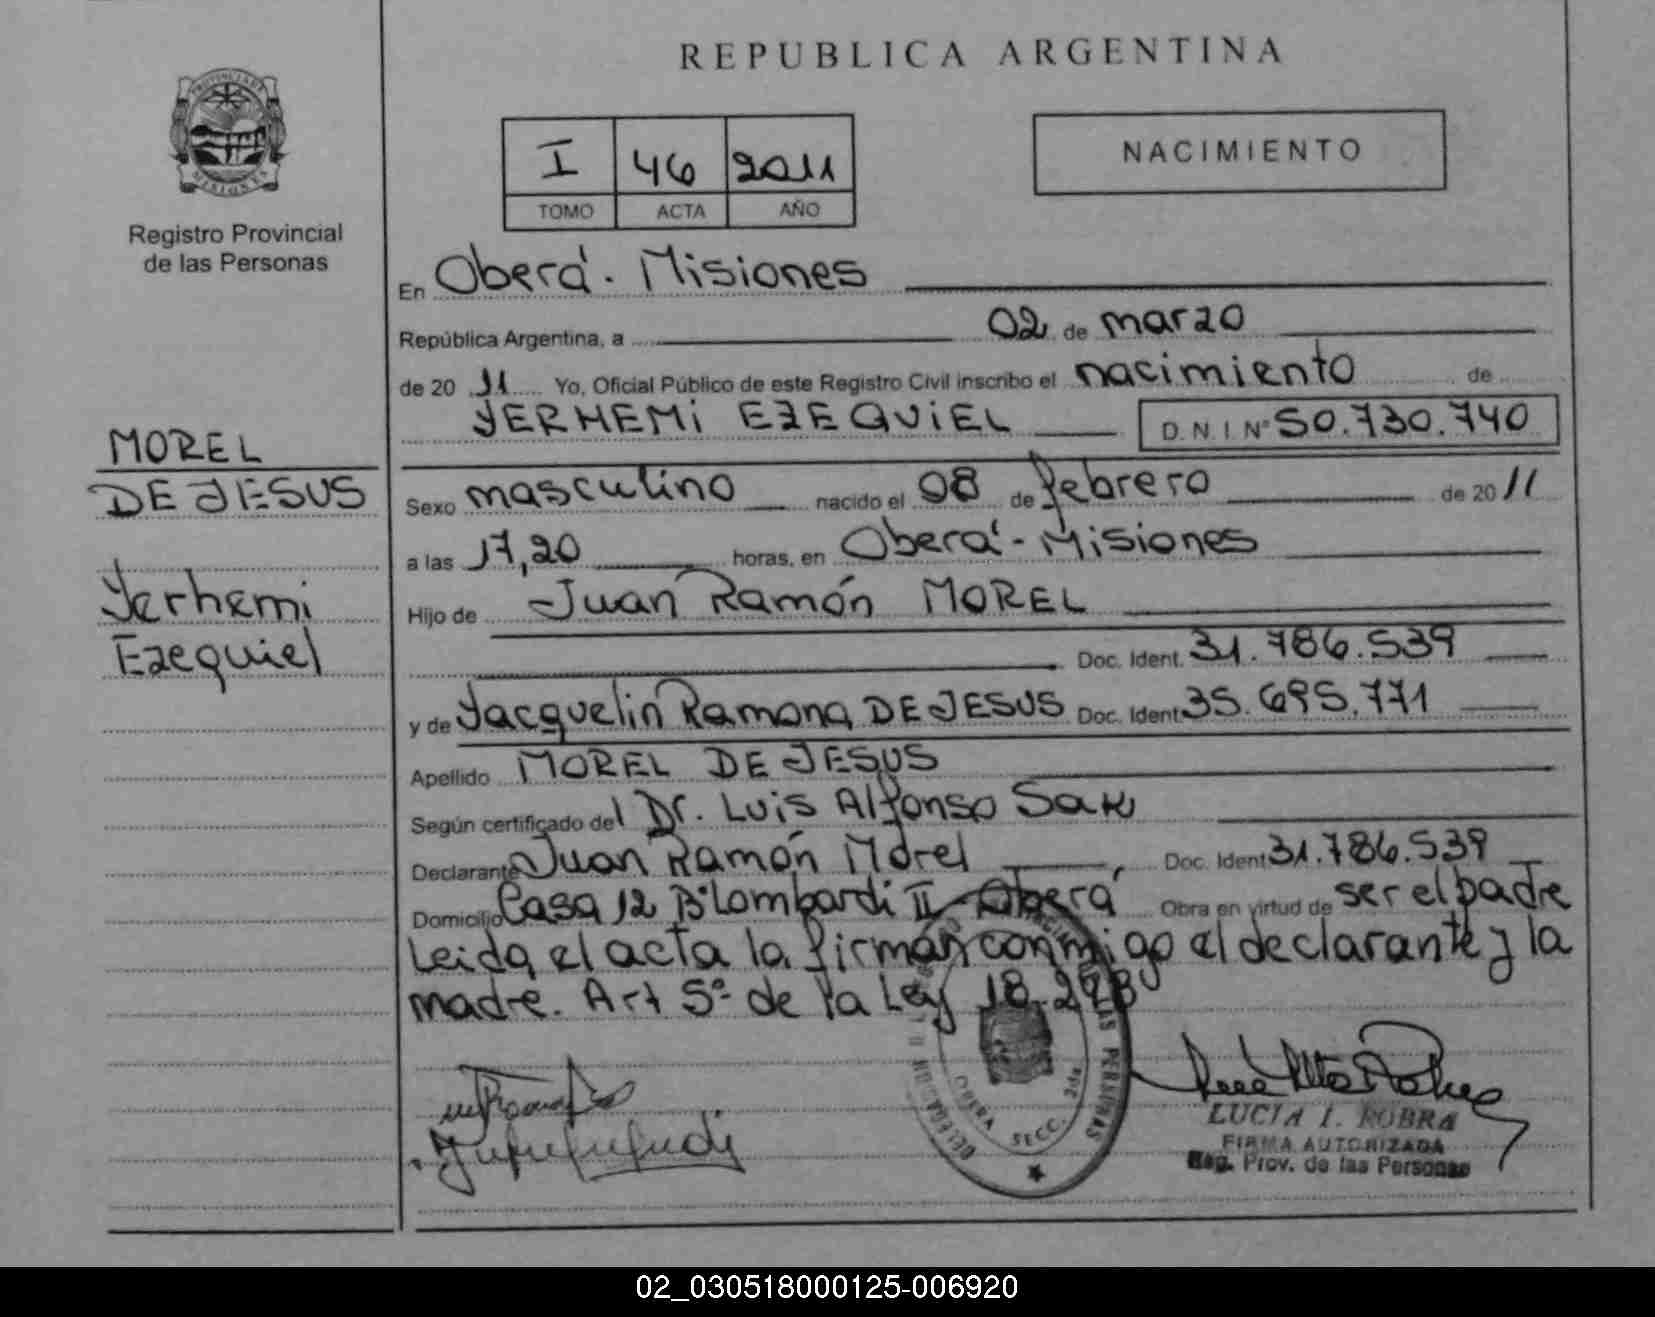 REPUBLICA ARGENTINA
PROVINCIA DE
MISIONES
Registro Provincial
de las Personas
I 46 2011
TOMO ACTA AÑO
NACIMIENTO
MOREL
DE JESUS
Yerhemi
Ezequiel
En Oberá - Misiones
República Argentina, a 02 de marzo
de 20 11 Yo, Oficial Público de este Registro Civil inscribo el nacimiento de
YERHEMI EZEQUIEL D.N.I. Nº 50.730.740
Sexo masculino nacido el 08 de febrero de 20 11
a las 17,20 horas, en Oberá - Misiones
Hijo de Juan Ramón MOREL
Doc. Ident. 31.786.539
y de Yacquelin Ramona DE JESUS Doc. Ident. 35.695.771
Apellido MOREL DE JESUS
Según certificado del Dr. Luis Alfonso Sak
Declarante Juan Ramón Morel Doc. Ident 31.786.539
Domicilio Casa 12 Bº Lombardi II - Oberá Obra en virtud de ser el padre
Leida el acta la firman conmigo el declarante y la
madre. Art 5º de la Ley 18.248
LAS PERSONAS
SECC. 2da.
LUCIA I. ROBRA
FIRMA AUTORIZADA
Reg. Prov. de las Personas
02_030518000125-006920